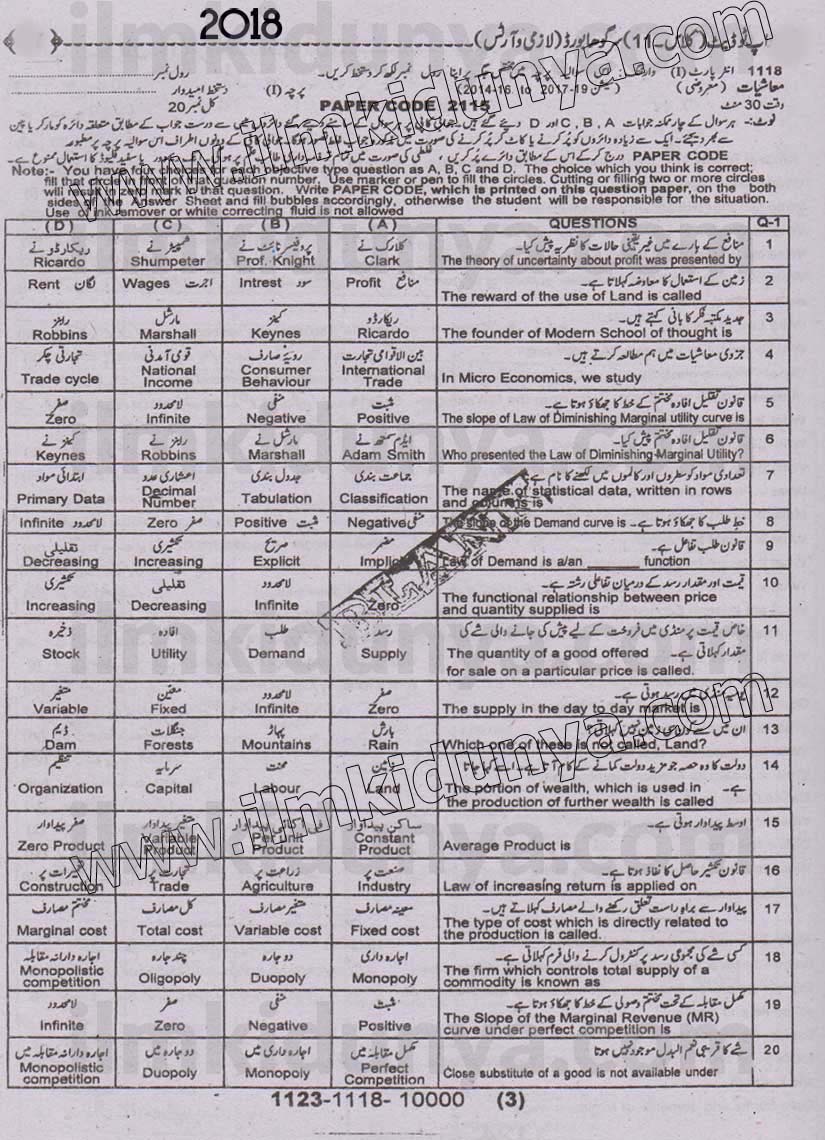 2018
اپ ٹو ڈیٹ (کلاس ۔ 11) سرگودھا بورڈ (لازمی و آرٹس)
1118 انٹر پارٹ (I) رول نمبر
معاشیات (معروضی) (سیشن 2014-16 to 2017-19) پرچہ (I) دستخط امیدوار
وقت 30 منٹ PAPER CODE 2115 کل نمبر 20
نوٹ:- ہر سوال کے چار ممکنہ جوابات C, B, A اور D دیئے گئے ہیں۔
PAPER CODE درج کر کے اس کے مطابق دائرے پُر کریں،
Note:- You have four choices for each objective type question as A, B, C and D. The choice which you think is correct;
fill that circle in front of that question number. Use marker or pen to fill the circles. Cutting or filling two or more circles
will result in zero mark in that question. Write PAPER CODE, which is printed on this question paper, on the both
sides of the Answer Sheet and fill bubbles accordingly, otherwise the student will be responsible for the situation.
Use of ink remover or white correcting fluid is not allowed
(D) (C) (B) (A) QUESTIONS Q-1
ریکارڈو نے شمپیٹر نے پروفیسر نائٹ نے کلارک نے منافع کے بارے میں غیر یقینی حالات کا نظریہ پیش کیا۔ 1
Ricardo Shumpeter Prof. Knight Clark The theory of uncertainty about profit was presented by
Rent لگان Wages اجرت Intrest سود Profit منافع زمین کے استعمال کا معاوضہ کہلاتا ہے۔ 2
The reward of the use of Land is called
رابنز مارشل کینز ریکارڈو جدید مکتبہ فکر کا بانی کہتے ہیں۔ 3
Robbins Marshall Keynes Ricardo The founder of Modern School of thought is
تجارتی چکر قومی آمدنی رویۂ صارف بین الاقوامی تجارت جزوی معاشیات میں ہم مطالعہ کرتے ہیں۔ 4
Trade cycle National Income Consumer Behaviour International Trade In Micro Economics, we study
صفر لامحدود منفی مثبت قانون تقلیل افادہ مختتم کے خط کا جھکاؤ ہوتا ہے۔ 5
Zero Infinite Negative Positive The slope of Law of Diminishing Marginal utility curve is
کینز نے رابنز نے مارشل نے ایڈم سمتھ نے قانون تقلیل افادہ مختتم پیش کیا۔ 6
Keynes Robbins Marshall Adam Smith Who presented the Law of Diminishing Marginal Utility?
ابتدائی مواد اعشاری عدد جدول بندی جماعت بندی تعدادی مواد کو سطروں اور کالموں میں لکھنے کا نام ہے 7
Primary Data Decimal Number Tabulation Classification The name of statistical data, written in rows
and columns is
Infinite لامحدود Zero صفر Positive مثبت Negative منفی خط طلب کا جھکاؤ ہوتا ہے۔ The slope of the Demand curve is 8
تقلیلی تکثیری صریح مضمر قانون طلب تفاعل ہے۔ 9
Decreasing Increasing Explicit Implicit Law of Demand is a/an ________ function
تکثیری تقلیلی لامحدود قیمت اور مقدار رسد کے درمیان تفاعلی رشتہ ہے۔ 10
Increasing Decreasing Infinite Zero The functional relationship between price
and quantity supplied is
ذخیرہ افادہ طلب رسد خاص قیمت پر منڈی میں فروخت کے لیے پیش کی جانے والی شے کی 11
Stock Utility Demand Supply مقدار کہلاتی ہے۔ The quantity of a good offered
for sale on a particular price is called.
متغیر معین لامحدود صفر میں رسد ہوتی ہے۔ 12
Variable Fixed Infinite Zero The supply in the day to day market is
ڈیم جنگلات پہاڑ بارش ان میں سے 13
Dam Forests Mountains Rain Which one of these is not called, Land?
تنظیم سرمایہ محنت زمین دولت کا وہ حصہ جو مزید دولت کمانے کے کام آتا ہے، اسے کہا جاتا 14
Organization Capital Labour Land ہے۔ The portion of wealth, which is used in
the production of further wealth is called
صفر پیداوار متغیر پیداوار فی اکائی پیداوار ساکن پیداوار اوسط پیداوار ہوتی ہے۔ 15
Zero Product Variable Product Per Unit Product Constant Product Average Product is
تعمیرات پر تجارت پر زراعت پر صنعت پر قانون تکثیر حاصل کا نفاذ ہوتا ہے۔ 16
Construction Trade Agriculture Industry Law of increasing return is applied on
مختتم مصارف کل مصارف متغیر مصارف معینہ مصارف پیداوار سے براہ راست تعلق رکھنے والے مصارف کہلاتے ہیں۔ 17
Marginal cost Total cost Variable cost Fixed cost The type of cost which is directly related to
the production is called.
اجارہ دارانہ مقابلہ چند اجارہ دو اجارہ اجارہ داری کسی شے کی مجموعی رسد پر کنٹرول کرنے والی فرم کہلاتی ہے۔ 18
Monopolistic competition Oligopoly Duopoly Monopoly The firm which controls total supply of a
commodity is known as
لامحدود صفر منفی مثبت مکمل مقابلہ کے تحت مختتم وصولی کے خط کا جھکاؤ ہوتا ہے۔ 19
Infinite Zero Negative Positive The Slope of the Marginal Revenue (MR)
curve under perfect competition is
اجارہ دارانہ مقابلہ میں دو اجارہ میں اجارہ داری میں مکمل مقابلہ میں شے کا قریبی نعم البدل موجود نہیں ہوتا 20
Monopolistic competition Duopoly Monopoly Perfect Competition Close substitute of a good is not available under
1123-1118- 10000 (3)
www.ilmkidunya.com
www.ilmkidunya.com